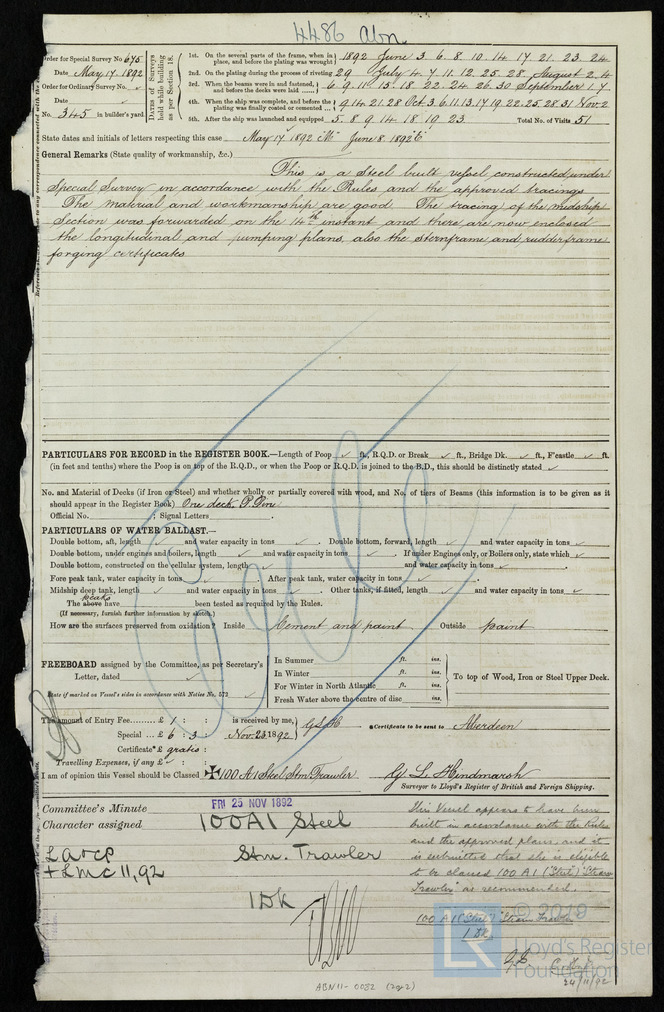 4486 Abn
Order for Special Survey No 675
Date May 17 1892
Order for Ordinary Survey No. ✓
Date ✓
No. 345 in builder's yard.
Dates of Surveys held while building as per Section 18.
1st. On the several parts of the frame, when in place, and before the plating was wrought 1892 June 3. 6. 8. 10. 14. 17. 21. 23. 24
2nd. On the plating during the process of riveting 29 July 4. 7. 11. 12. 25. 28. August 2. 4
3rd. When the beams were in and fastened, and before the decks were laid 6. 9. 11. 15. 18. 22. 24. 26. 30 September 1. 7
4th. When the ship was complete, and before the plating was finally coated or cemented 9. 14. 21. 28 Oct 3. 6. 11. 13. 17. 19. 22. 25. 28. 31. Nov. 2
5th. After the ship was launched and equipped 5. 8. 9. 14. 18. 19. 23. Total No. of Visits 51
State dates and initials of letters respecting this case May 17 1892 "M" June 8. 1892
General Remarks (State quality of workmanship, &c.)
This is a Steel built vessel constructed under
Special Survey in accordance with the Rules and the approved tracings
The material and workmanship are good The tracing of the midship
Section was forwarded on the 14th instant and there are now enclosed
the longitudinal and pumping plans, also the sternframe and rudderframe
forging certificates
PARTICULARS FOR RECORD in the REGISTER BOOK.—Length of Poop ✓ ft., R.Q.D. or Break ✓ ft., Bridge Dk. ✓ ft., F'castle ✓ ft.
(in feet and tenths) where the Poop is on top of the R.Q.D., or when the Poop or R.Q.D. is joined to the B.D., this should be distinctly stated ✓
No. and Material of Decks (if Iron or Steel) and whether wholly or partially covered with wood, and No. of tiers of Beams (this information is to be given as it
should appear in the Register Book) One deck P. Pine
Official No. ; Signal Letters
PARTICULARS OF WATER BALLAST.—
Double bottom, aft, length ✓ and water capacity in tons ✓. Double bottom, forward, length ✓ and water capacity in tons ✓
Double bottom, under engines and boilers, length ✓ and water capacity in tons ✓. If under Engines only, or Boilers only, state which ✓
Double bottom, constructed on the cellular system, length ✓ and water capacity in tons ✓.
Fore peak tank, water capacity in tons ✓. After peak tank, water capacity in tons ✓.
Midship deep tank, length ✓ and water capacity in tons ✓. Other tanks, if fitted, length ✓ and water capacity in tons ✓
peaks
The above have been tested as required by the Rules.
(If necessary, furnish further information by sketch.)
How are the surfaces preserved from oxidation? Inside Cement and paint Outside paint
FREEBOARD assigned by the Committee, as per Secretary's
Letter, dated
State if marked on Vessel's sides in accordance with Notice No. 573 ✓
In Summer ft. ins.
In Winter ft. ins.
For Winter in North Atlantic ft. ins.
Fresh Water above the centre of disc ft. ins.
To top of Wood, Iron or Steel Upper Deck.
The amount of Entry Fee £ 1 : : is received by me,
Special £ 6 : 3 : Nov. 23 1892
Certificate* £ gratis :
Travelling Expenses, if any £ ✓ :
*Certificate to be sent to Aberdeen
I am of opinion this Vessel should be Classed ✠100 A1 Steel Stm Trawler
G L Hindmarsh
Surveyor to Lloyd's Register of British and Foreign Shipping.
Committee's Minute
FRI 25 NOV 1892
Character assigned 100A1 Steel
Stm. Trawler
LA&CP
+LMC 11,92
1 Dk
This Vessel appears to have been
built in accordance with the Rules
and the approved plans, and it
is submitted that she is eligible
to be classed 100 A1 ("Steel") "Steam
Trawler" as recommended.
100 A1 ("Steel") "Steam Trawler"
1 Dk.
24/11/92
© 2019
LR
Lloyd's Register
Foundation
ABN11-0032 (2of2)